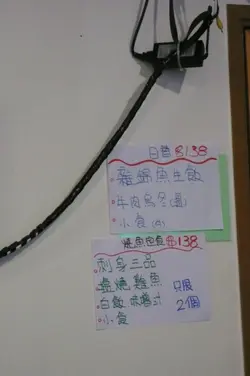 日替 $138
雜錦魚生飯
牛肉烏冬(湯)
小食(冷)
燒魚定食 $138
刺身三品
塩燒雞魚
白飯 味噌汁
小食
只限
2個